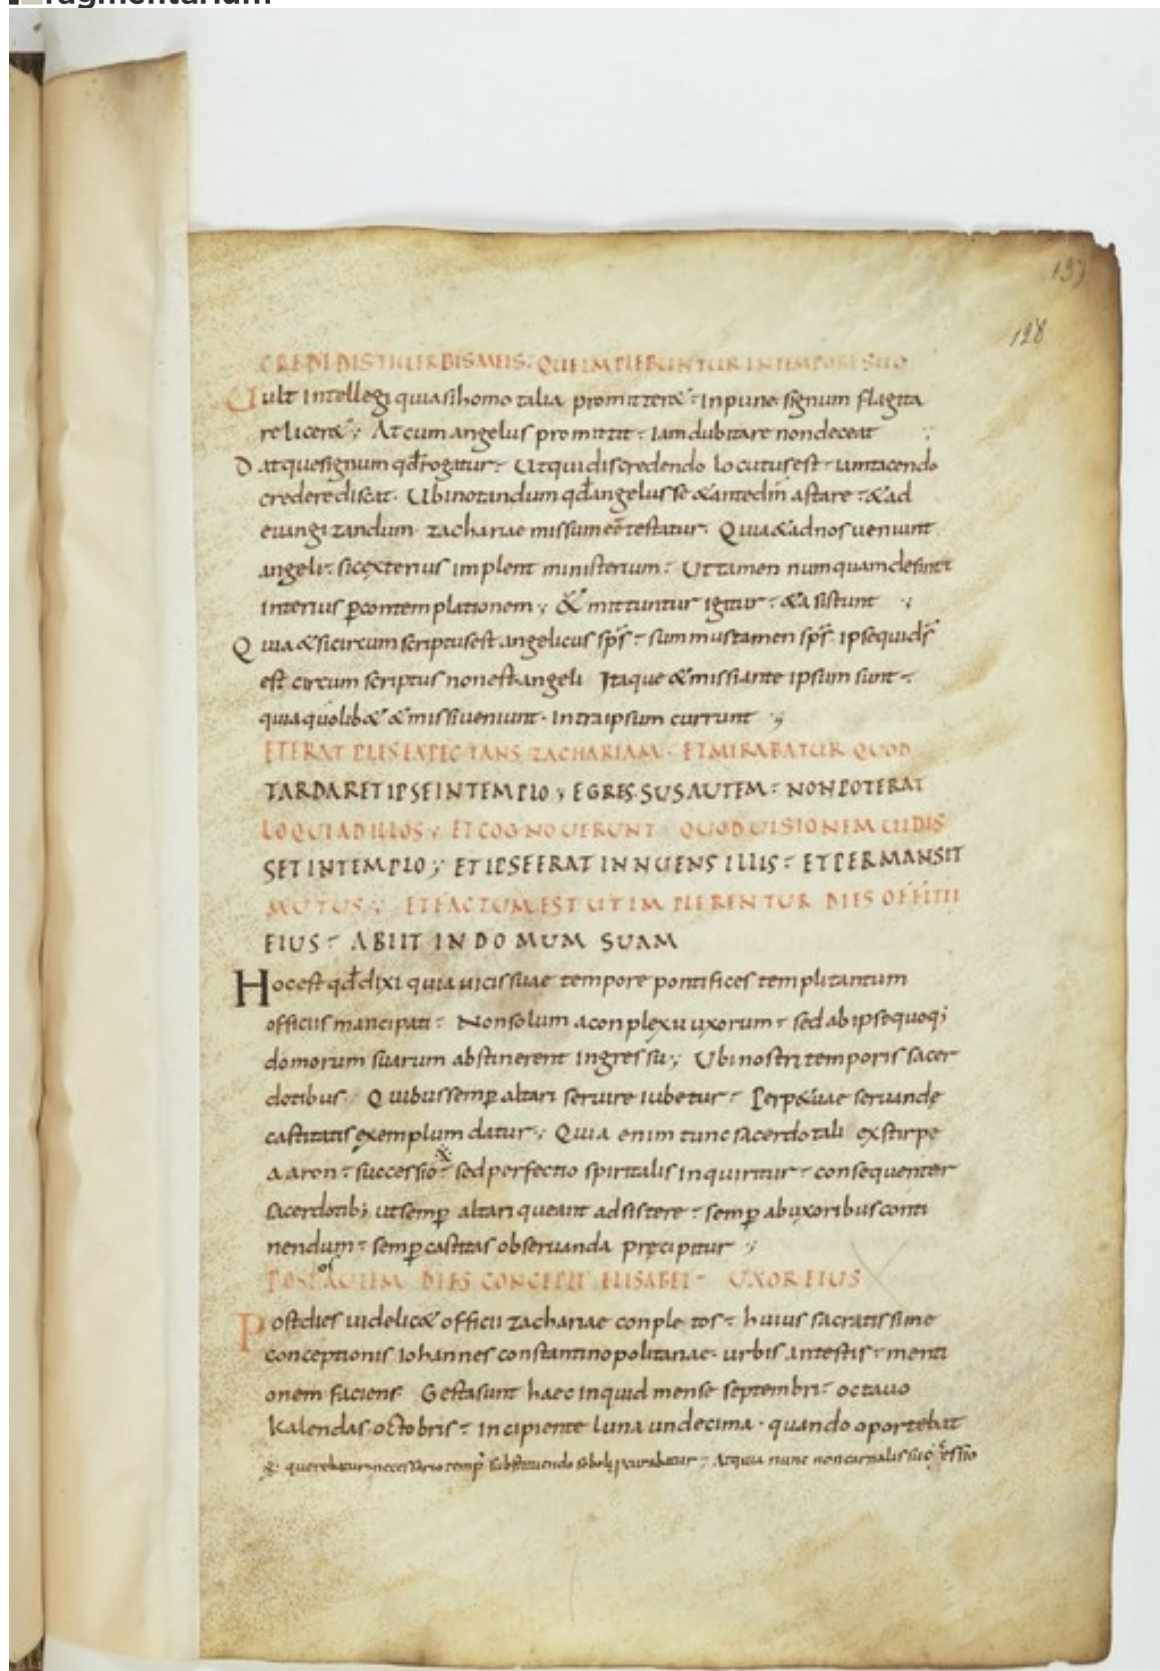 fragmentarium
137
128
CREDIDISTI UERBIS MEIS. QUE IMPLEBUNTUR IN TEMPORE SUO
Uult intellegi quia si homo talia promitter& inpune signum flagita
re licer& At cum angelus promittit iam dubitare non deceat
Datque signum qđ rogatur. Ut qui discredendo locutus est iam tacendo
credere discat. Ubi notandum qđ angelus se & ante dm̄ astare & ad
euangizandum zachariae missum eē testatur. Quia & ad nos ueniunt
angeli sic exterius implent ministerium. Ut tamen numquam desint
interius ꝑ contemplationem & mittuntur igitur & asistunt
Quia & si circumscriptus est angelicus sp̄s summus tamen sp̄s ipse qui d̄s
est circumscriptus non est angeli Itaque & missi ante ipsum sunt
quia quolib& & missi ueniunt. Intra ipsum currunt
ET ERAT PLEBS EXPECTANS ZACHARIAM. ET MIRABATUR QUOD
TARDARET IPSE IN TEMPLO; EGRESSUS AUTEM NON POTERAT
LOQUI AD ILLOS; ET COGNOUERUNT QUOD UISIONEM UIDIS
SET IN TEMPLO; ET IPSE ERAT INNUENS ILLIS ET PERMANSIT
MUTUS; ET FACTUM EST UT IMPLERENTUR DIES OFFITII
EIUS ABIIT IN DOMUM SUAM
Hoc est qđ dixi quia uicis suae tempore pontifices templi tantum
officiis mancipati Non solum a conplexu uxorum sed ab ipse quoq;
domorum suarum abstinerent ingressu; Ubi nostri temporis sacer
dotibus Quibus semꝑ altari seruire iubetur Perp&uae seruandę
castitatis exemplum datur; Quia enim tunc sacerdotali ex stirpe
aaron successio sed perfectio spiritalis inquiritur consequenter
sacerdotib; ut semꝑ altari queant adsistere semꝑ ab uxoribus conti
nendum semꝑ castitas obseruanda pręcipitur;
POST AUTEM DIES CONCEPIT ELISABET UXOR EIUS
Post dies uidelic& officii zachariae conpletos huius sacratissime
conceptionis iohannes constantinopolitanae urbis antestis menti
onem faciens Gesta sunt haec inquid mense septembri octauo
Kalendas octobris incipiente luna undecima. quando oportebat
querebatur necessario temp̄ substituendo soboli ꝓcurabatur Atquia nunc non carnalis successio